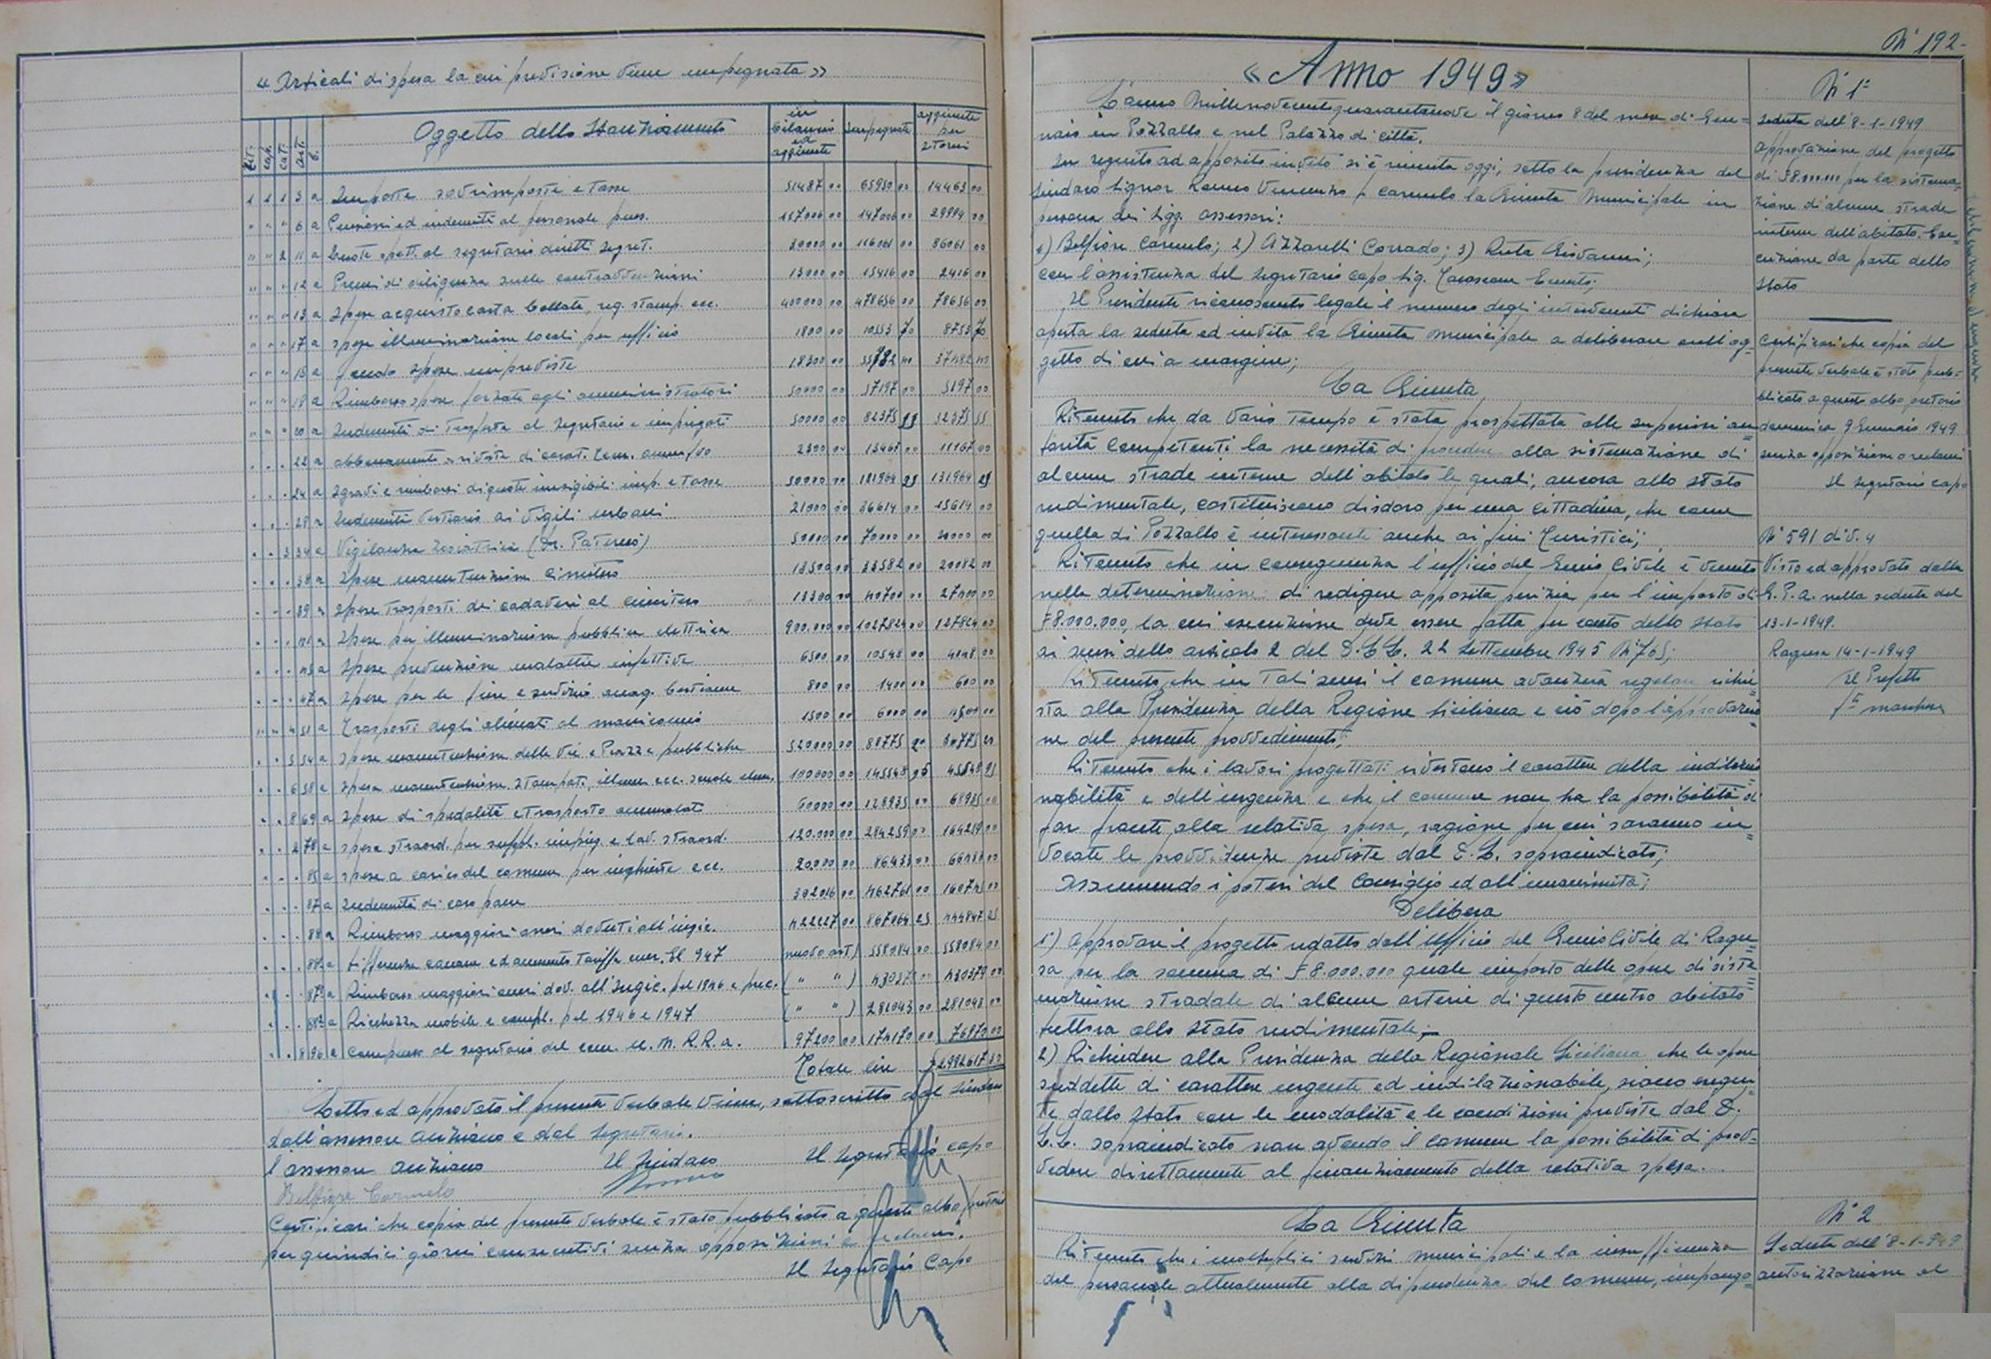 « Articoli di spesa la cui previsione viene impegnata »
Tit. cap. cat. art. Oggetto dello Stanziamento in bilancio ed aggiunte Impegnate aggiunte per storni
1 1 1 3 a Imposte sovrimposte e tasse 51487 00 65950 00 14463 00
" " " 6 a Pensioni ed indennità al personale pens. 117006 00 147006 00 00
" " 2 11 a Quote spett. al segretario diritti segret. 30000 00 116061 00 86061 00
" " " 12 a Premi di diligenza sulle contravvenzioni 13000 00 15416 00 2416 00
" " " 13 a Spese acquisto carta bollata, reg. stamp. ecc. 400000 00 478656 00 78656 00
" " " 17 a Spese illuminazione locali per ufficio 1800 00 10553 70 8753 70
" " " a fondo spese impreviste 18300 00 00
" " " a Rimborso spese forzate agli amministratori 50000 00 57197 00 5197 00
" " " 20 a Indennità di trasferta al Segretario e impiegati 50000 00 82375 55 32375 55
" " " 22 a abbonamento a riviste di carat. 2300 00 13467 00 11167 00
" " " 24 a Sgravi e rimborsi di quote inesigibili imp. e tasse 50000 00 181964 25 131964 25
" " " 28 a Indennità vestiario ai Vigili urbani 21000 00 36614 00 15614 00
" " 3 34 a Vigilanza zooiatrica (Dr. Paternò) 50000 00 70000 00 20000 00
" " " 38 a Spese manutenzione Cimitero 13500 00 33582 00 20082 00
" " " 39 a Spese trasporti dei cadaveri al cimitero 13300 00 40700 00 27400 00
" " " 41 a Spese per illuminazione pubblica elettrica 900.000 00 1027824 00 127824 00
" " " 45 a Spese prevenzione malattie infettive 6500 00 10548 00 4048 00
" " " 47 a Spese per le fiere e servizio anag. bestiame 800 00 1400 00 600 00
" " 4 51 a Trasporti degli alienati al manicomio 1500 00 6000 00 4500 00
" " 5 54 a Spese manutenzione delle Vie e Piazze pubbliche 520000 00
" " 6 58 a Spesa manutenzione stampati, illum. ecc. scuole elem. 100000 00 145548 25 45548 25
" " 8 69 a Spese di spedalità e trasporto ammalati 60000 00 128925 00 68925 00
" " 2 78 a Spese straord. per suppl. impieg. e lav. straord. 120.000 00 284259 00 164259 00
" " " 85 a Spese a carico del comune per inchieste ecc. 20.000 00 86433 00 66433 00
" " " 87 a Indennità di caro pane 302016 00 462761 00 160745 00
" " " 88 a Rimborso maggiori oneri dovuti all'ingic. 422227 00 867064 25 444847 25
" " " a differenza canone ed aumento tariffa ener. El. 947 nuovo art) 558084 00 558084 00
" " " a Rimborso maggiori oneri dov. all'Ingic. pel 1946 e prec. ( " " ) 430379 00 430379 00
" " " a Ricchezza mobile e compl. pel 1946 e 1947 ( " " ) 281043 00 281043 00
" " 8 96 a compenso al segretario del com. U.N.R.R.A. 97200 00 174170 00 76970 00
Totale lire £ 2992617.00
Letto ed approvato il presente verbale viene, sottoscritto dal Sindaco
dall'assessore anziano e dal Segretario.
L'assessore anziano Il Sindaco Il Segretario capo
Belfiore Carmelo
Certificasi che copia del presente verbale è stato pubblicato a questo albo pretorio
per quindici giorni consecutivi senza opposizioni e reclami.
Il Segretario Capo
N° 192-
« Anno 1949 »
L'anno Millenovecentoquarantanove il giorno 8 del mese di Gen=
naio in Pozzallo e nel Palazzo di città.
In seguito ad apposito invito si è riunita oggi, sotto la presidenza del
Sindaco Signor Vincenzo fu Carmelo la Giunta Municipale in
persona dei Sigg. assessori:
1) Belfiore Carmelo; 2) Azzarelli Corrado; 3) Ruta Giovanni;
con l'assistenza del Segretario capo Sig.
Il Presidente riconosciuto legale il numero degli intervenuti dichiara
aperta la seduta ed invita la Giunta Municipale a deliberare sull'og=
getto di cui a margine;
La Giunta
Ritenuto che da vario tempo è stata prospettata alle superiori au=
torità competenti la necessità di procedere alla sistemazione di
alcune strade interne dell'abitato le quali, ancora allo stato
rudimentale, costituiscono disdoro per una cittadina, che come
quella di Pozzallo è interessante anche ai fini turistici;
Ritenuto che in conseguenza l'ufficio del Genio Civile è venuto
nella determinazione di redigere apposita perizia per l'importo di
£8.000.000, la cui esecuzione deve essere fatta per conto dello Stato
ai sensi dello articolo 2 del D.L.L. 22 Settembre 1945 N° 765;
Ritenuto che in tali sensi il comune avanzerà regolare richie=
sta alla Presidenza della Regione Siciliana e ciò dopo l'approvazio=
ne del presente provvedimento;
Ritenuto che i lavori progettati rivestono il carattere della indilazio=
nabilità e dell'urgenza e che il comune non ha la possibilità di
far fronte alla relativa spesa, ragione per cui saranno in=
vocate le provvidenze previste dal D.L. sopraindicato;
Assumendo i poteri del Consiglio ed all'unanimità;
Delibera
1) Approvare il progetto redatto dall'Ufficio del Genio Civile di Ragu=
sa per la somma di £ 8.000.000 quale importo delle opere di siste=
mazione stradale di alcune arterie di questo centro abitato
tuttora allo stato rudimentale;
2) Richiedere alla Presidenza della Regionale Siciliana che le opere
suddette di carattere urgente ed indilazionabile, siano esegui=
te dallo Stato con le modalità e le condizioni previste dal D.
L.L. sopraindicato non avendo il comune la possibilità di prov=
vedere direttamente al finanziamento della relativa spesa.
La Giunta
Ritenuto che i molteplici servizi municipali e la insufficienza
del personale attualmente alla dipendenza del comune, impongo=
N° 1=
Seduta dell'8-1-1949
approvazione del progetto
di £ 8.000.000 per la sistema=
zione di alcune strade
interne dell'abitato. Ese=
cuzione da parte dello
Stato
Certificasi che copia del
presente verbale è stato pub=
blicato a questo albo pretorio
domenica 9 Gennaio 1949
senza opposizioni o reclami
Il Segretario capo
N° 591 div. 4
Visto ed approvato dalla
G.P.A. nella seduta del
13-1-1949.
Ragusa 14-1-1949
Il Prefetto
N° 2
Seduta dell'8-1-949
autorizzazione al